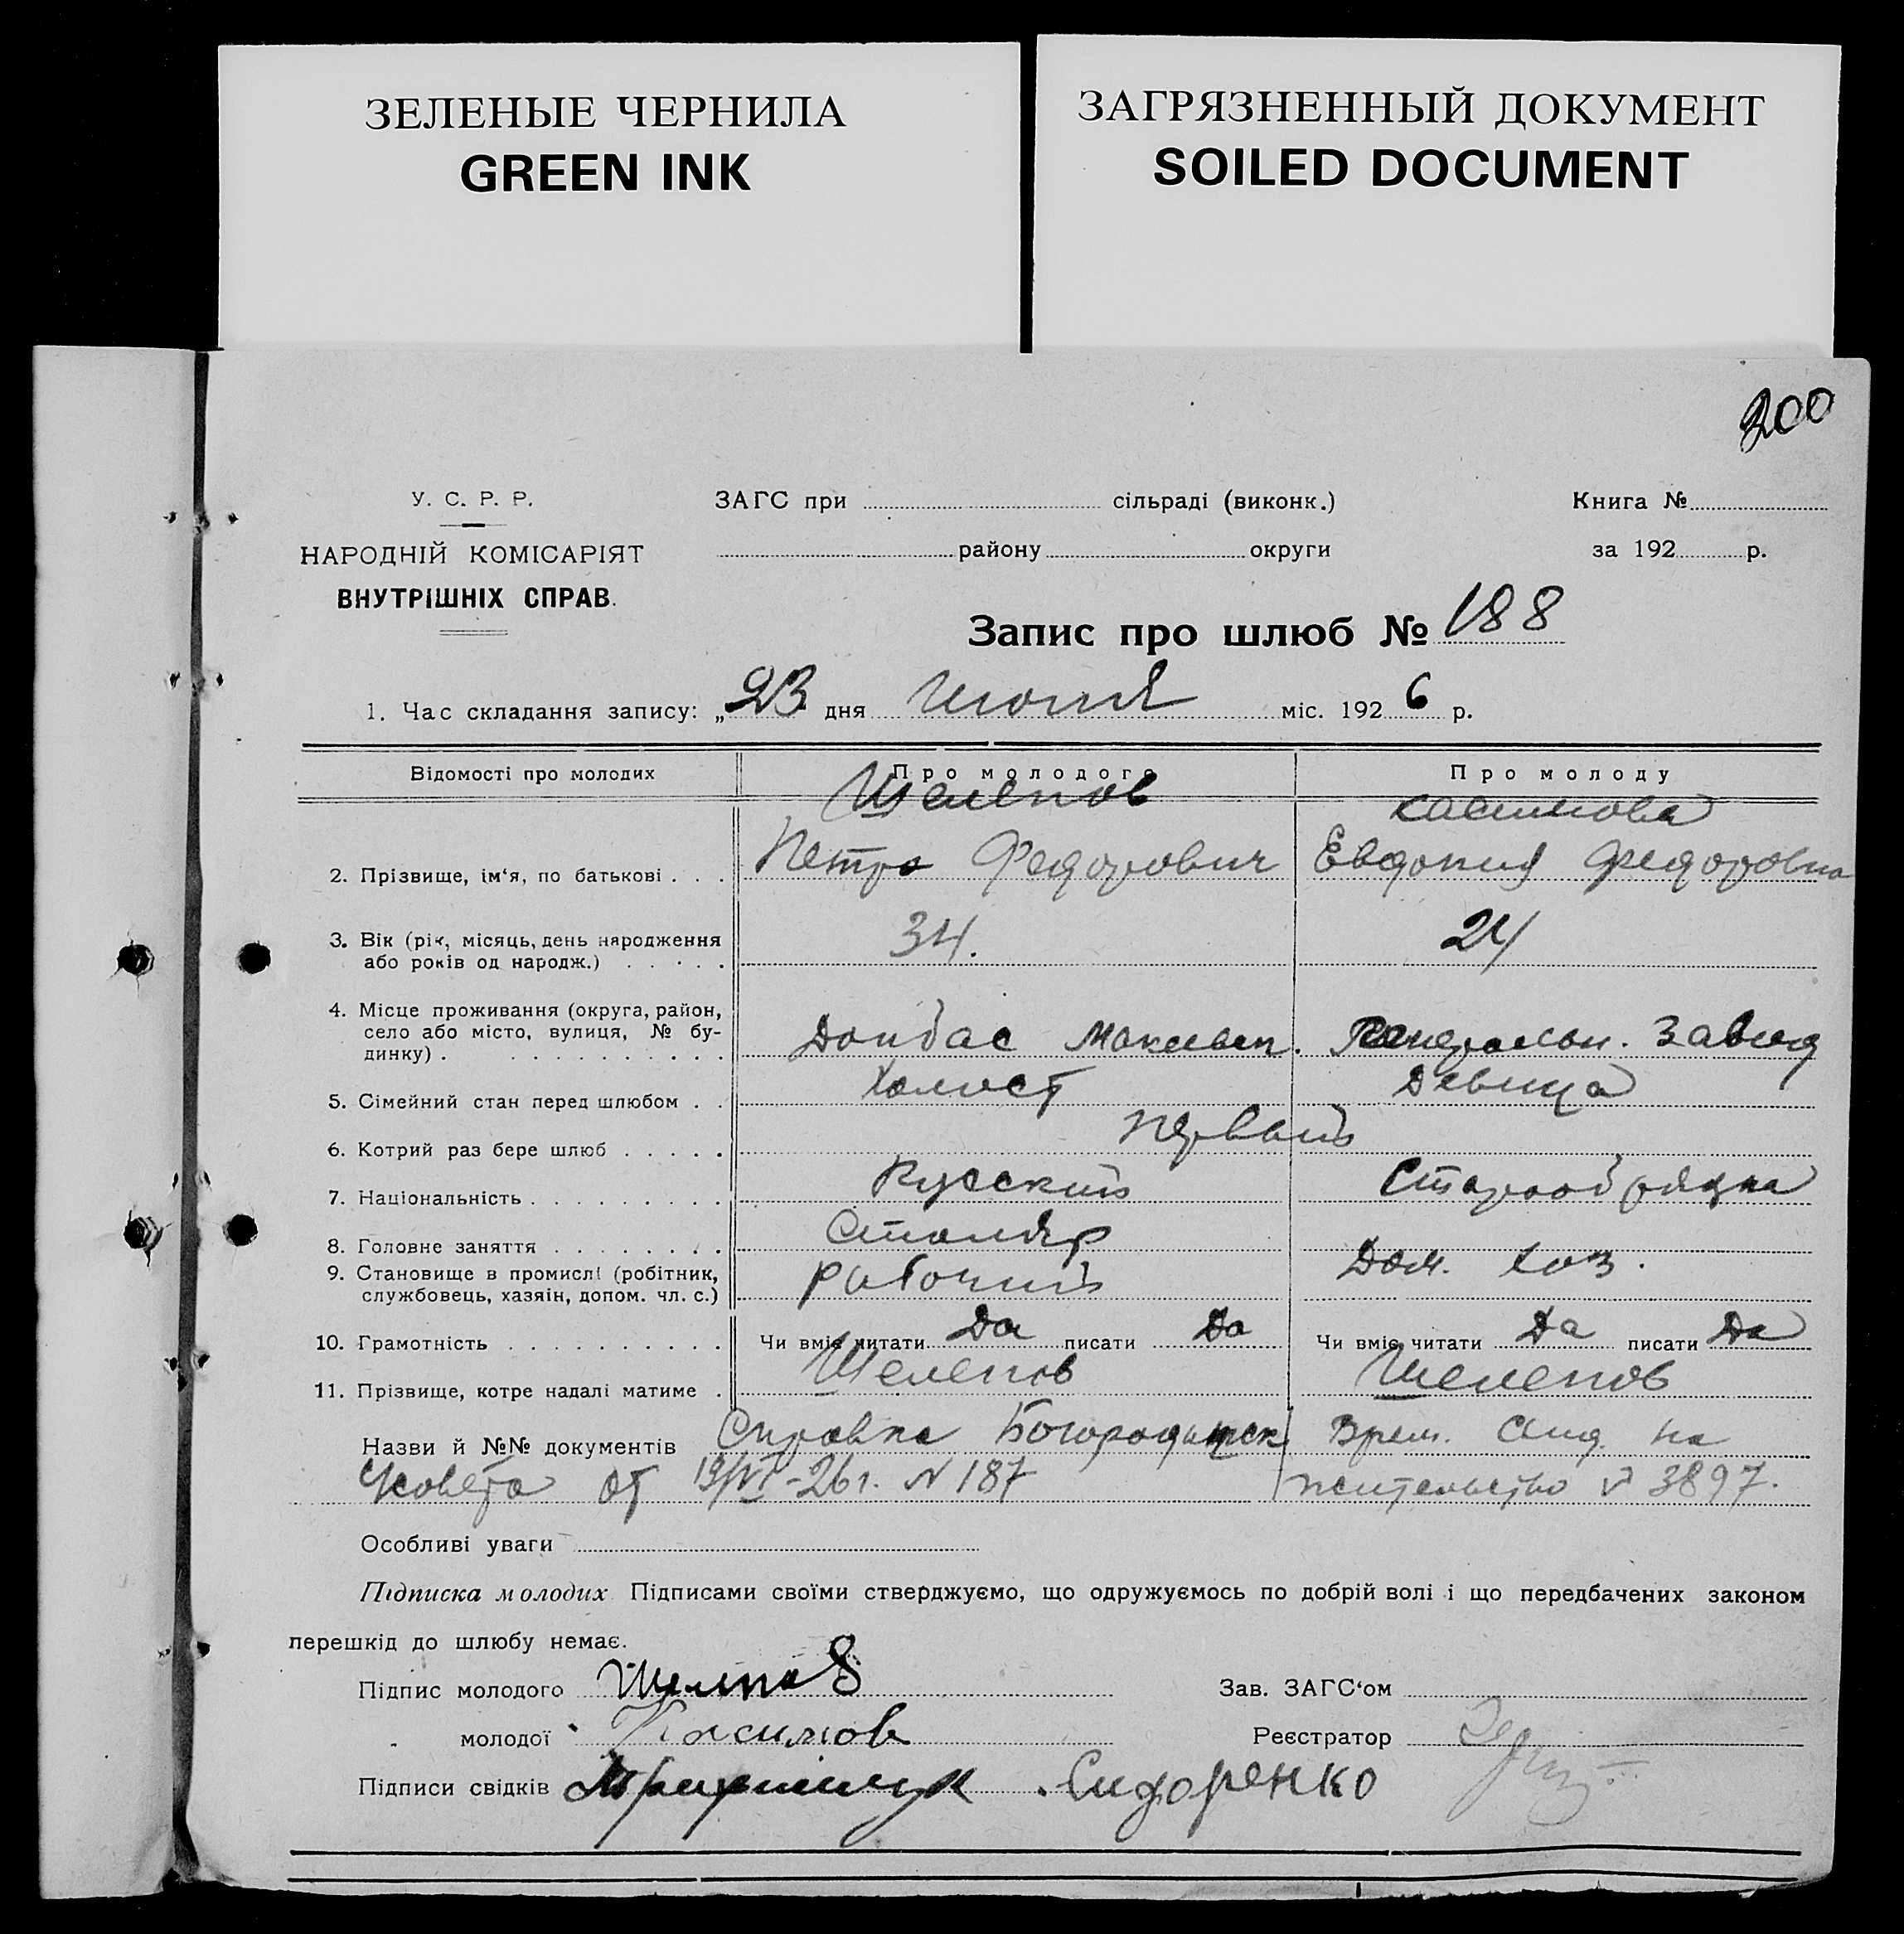 ЗЕЛЕНЫЕ ЧЕРНИЛА
GREEN INK
ЗАГРЯЗНЕННЫЙ ДОКУМЕНТ
SOILED DOCUMENT
200
У. С. Р. Р.
НАРОДНІЙ КОМІСАРІЯТ
ВНУТРІШНІХ СПРАВ.
ЗАГС при сільраді (виконк.)
району округи
Книга №
за 192 р.
Запис про шлюб № 188
1. Час складання запису: „23 дня Июля міс. 1926 р.
Відомості про молодих Про молодого Про молоду
Шелепов Касимова
2. Прізвище, ім‘я, по батькові . . . Петро Федорович Евдокия Федоровна
3. Вік (рік, місяць, день народження 34. 24
або років од народж.) . . . . .
4. Місце проживання (округа, район,
село або місто, вулиця, № бу-
динку) . . . . . . . . . . . Донбас Макеевк. Завод
5. Сімейний стан перед шлюбом . . Холост Девица
6. Котрий раз бере шлюб . . . . . Первый
7. Національність . . . . . . . . . Русский Старообрядка
8. Головне заняття . . . . . . . . Столяр
9. Становище в промислі (робітник, Рабочий Дом. хоз.
службовець, хазяін, допом. чл. с.)
10. Грамотність . . . . . . . . . . Чи вміє читати Да писати Да Чи вміє читати Да писати Да
11. Прізвище, котре надалі матиме . Шелепов Шелепов
Назви й №№ документів Справка Богородицск Врем. на
от 19/VI-26 г. N 187 жительство № 3897.
Особливі уваги
Підписка молодих Підписами своїми стверджуємо, що одружуємось по добрій волі і що передбачених законом
перешкід до шлюбу немає.
Підпис молодого Шелпов Зав. ЗАГС‘ом
„ молодої Касимов Реєстратор
Підписи свідків Сидоренко